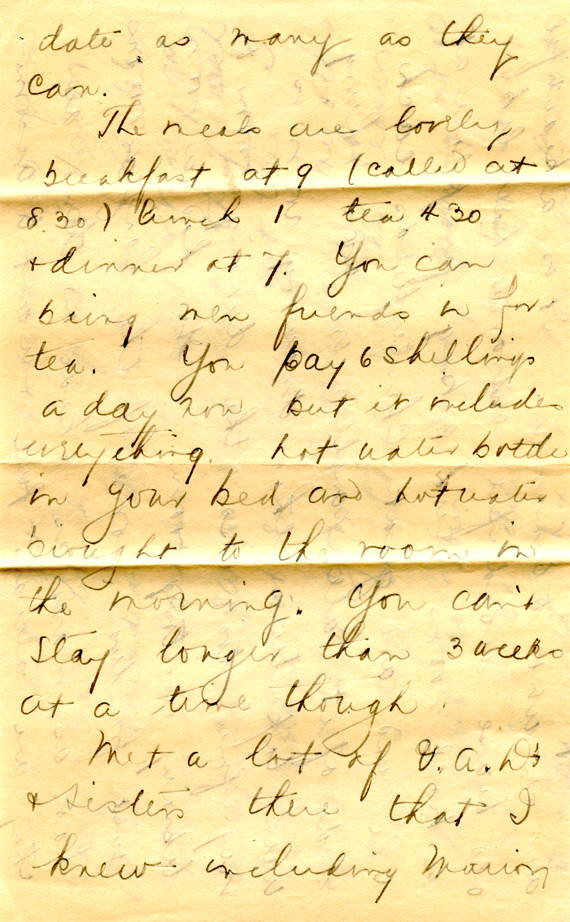 date as many as they
can.
The meals are lovely
breakfast at 9 (called at
8.30) lunch 1 tea 4 30
+ dinner at 7. You can
bring men friends in for
tea. You pay 6 shillings
a day now but it includes
everything. hot water bottle
in your bed and hot water
brought to the room in
the morning. You can't
stay longer than 3 weeks
at a time though.
Met a lot of V.A.D's
+ Sisters there that I
knew including Marion